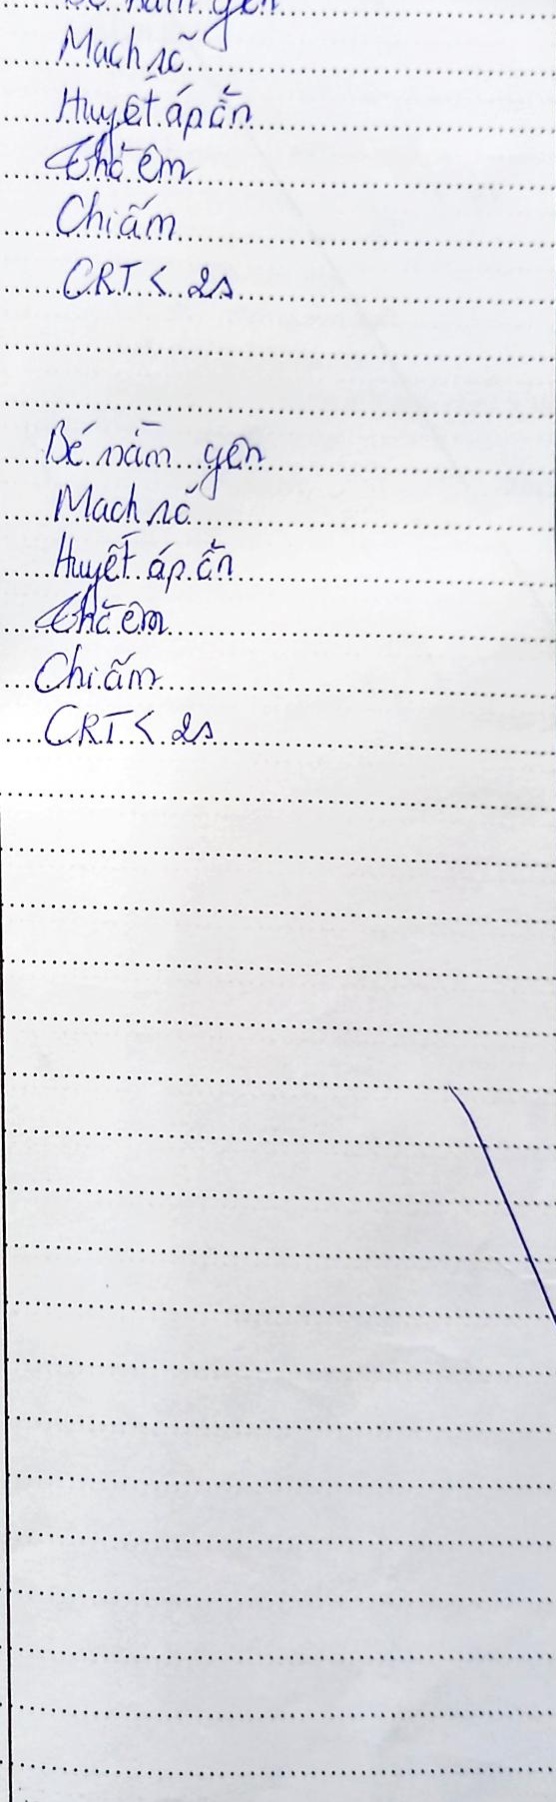 Bé nằm yên
Mạch rõ
Huyết áp ổn
Thở êm
Chi ấm
CRT < 2s
Bé nằm yên
Mạch rõ
Huyết áp ổn
Thở êm
Chi ấm
CRT < 2s